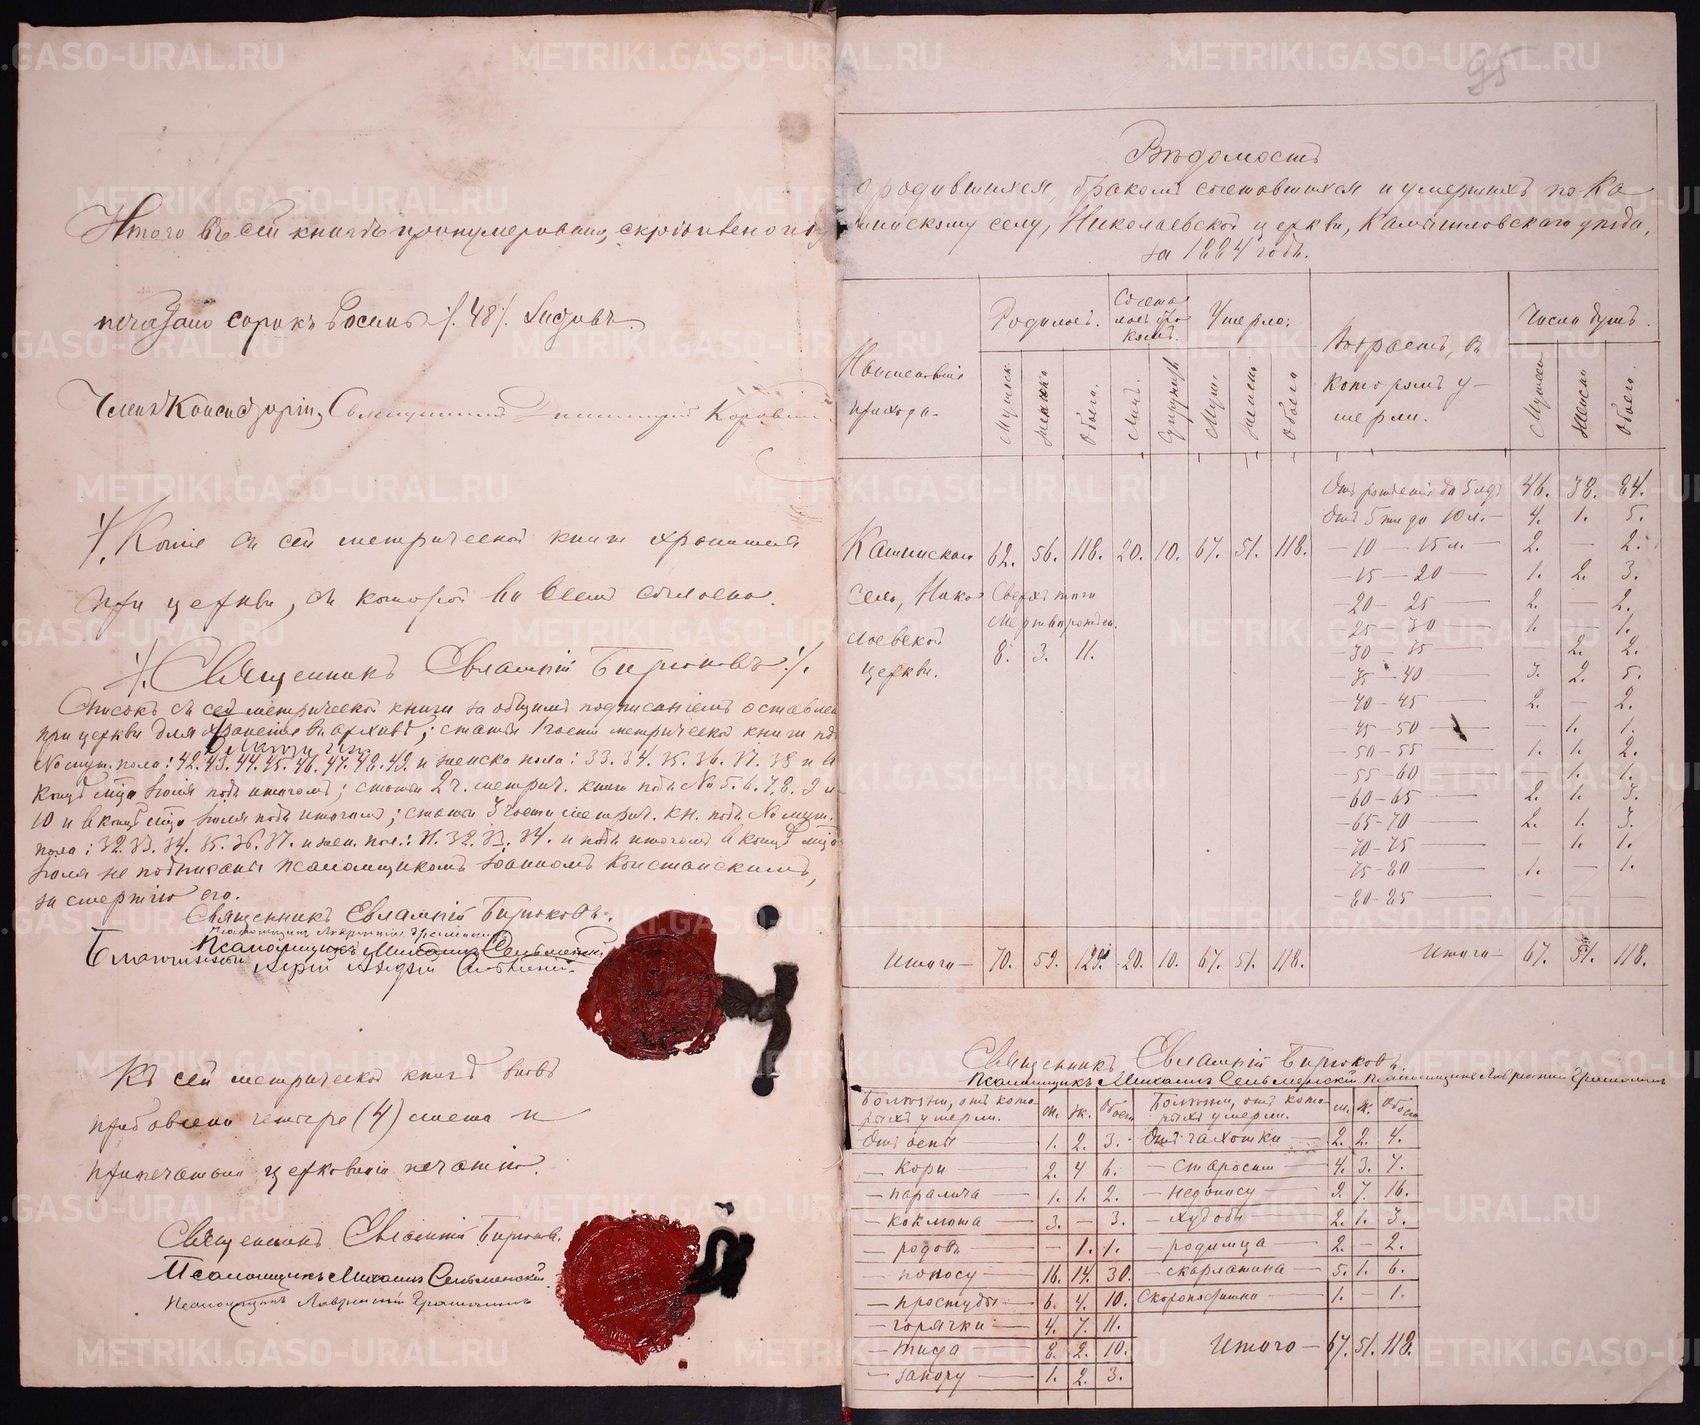 Итого въ сей книгѣ пронумеровано, скрѣплено и
печатано сорокъ восемь /.48/. листовъ.
Членъ Консисторіи, Священникъ Димитрій Коровинъ
/. Копія съ сей метрической книги хранится
при церкви, съ которой во всемъ согласна.
/. Священникъ Евлампій Бирюковъ /.
Списокъ съ сей метрической книги за общимъ подписаніемъ оставленъ
при церкви для храненія въ архивѣ; статьи 1 части метрической книги подъ
№ муж. пола: 42. 43. 44. 45. 46. 47. 48. 49. и женска пола: 33. 34. 35. 36. 37. 38 и въ
концѣ мца Іюля подъ итогомъ; статьи 2 ч. метрич. книги подъ № 5. 6. 7. 8. 9 и
10 и въ концѣ мца Іюля подъ итогомъ; статьи 3 части метрич. кн. подъ № муж.
пола: 32. 33. 34. 35. 36. 37. и жен. пол.: 31. 32. 33. 34. и подъ итогомъ въ концѣ мца
Іюля не подписаны псаломщикомъ Іоанномъ
за смертію его.
Священникъ Евлампій Бирюковъ.
Псаломщикъ Лаврентій
Псаломщикъ Михаилъ Сельменскій
Благочинный Іерей
Къ сей метрической книгѣ вновь
прибавлено четыре (4) листа и
припечатаны церковною печатію.
Священникъ Евлампій Бирюковъ.
Псаломщикъ Михаилъ Сельменскій
Псаломщикъ Лаврентій
95
Вѣдомость
о родившихся, бракомъ сочетавшихся и умершихъ по Ка-
минскому селу, Николаевской церкви, Камышловскаго уѣзда,
за 1884 годъ.
Наименованіе прихода.
Родилось.
Сочеталось бракомъ.
Умерло.
Возрастъ, въ которомъ умерли.
Число душъ.
Мужск. Женска Обоего. Муж. Женск Обоего Мужск Женск Обоего.
Отъ рожденія до 5 лѣтъ 46. 38. 84.
Отъ 5 ти до 10 л. — 4. 1. 5.
Каминскаго 62. 56. 118. 20. 10. 67. 51. 118. — 10 — 15 л. — 2. — 2.
— 15 — 20 — 1. 2. 3.
села, Нико- Сверхъ того — 20 — 25 — 2. — 2.
мертворожден. — 25 — 30 — 1. — 1.
лаевской 8. 3. 11. — 30 — 35 — — 2. 2.
церкви. — 35 — 40 3. 2. 5.
— 40 — 45 — 2. — 2.
— 45 — 50 — — 1. 1.
— 50 — 55 — 1. 1. 2.
— 55 — 60 — — 1. 1.
— 60 — 65 — 2. 1. 3.
— 65 — 70 — 2. 1. 3.
— 70 — 75 — — 1. 1.
— 75 — 80 — 1. — 1.
— 80 — 85 — — — —
Итого — 70. 59. 129. 20. 10. 67. 51. 118. Итого — 67. 51. 118.
Священникъ Евлампій Бирюковъ.
Псаломщикъ Михаилъ Сельменскій Псаломщикъ Лаврентій
Болѣзни, отъ кото- рыхъ умерли. м. ж. Обоего Болѣзни, отъ кото- рыхъ умерли. м. ж. Обоего
Отъ оспы 1. 2. 3. Отъ чахотки 2. 2. 4.
— кори 2. 4 6. — старости 4. 3. 7.
— паралича 1. 1. 2. — недоносу 9. 7. 16.
— коклюша 3. — 3. — худобы 2. 1. 3.
— родовъ — 1. 1. — родимца 2. — 2.
— поносу 16. 14. 30. — скарлатина 5. 1. 6.
— простуды 6. 4. 10. Скоропостижно 1. — 1.
— горячки 4. 7. 11.
— тифа 8. 2. 10. Итого — 67. 51. 118.
— запору 1. 2. 3.